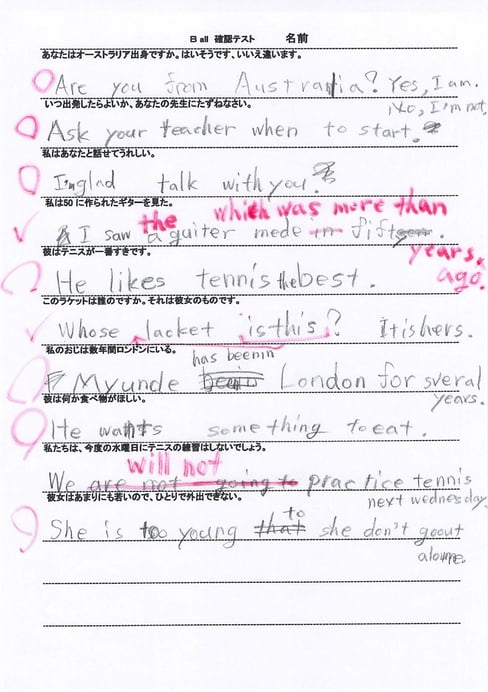 B all 確認テスト 名前
あなたはオーストラリア出身ですか。はいそうです、いいえ違います。
Are you from Australia? Yes, I am.
No, I'm not.
いつ出発したらよいか、あなたの先生にたずねなさい。
Ask your teacher when to start.
私はあなたと話せてうれしい。
I'm glad talk with you.
私は50に作られたギターを見た。
the which was more than
I saw a guiter mede in fifteen
years.
ago.
彼はテニスが一番すきです。
He likes tennis the best.
このラケットは誰のですか。それは彼女のものです。
Whose lacket is this? It is hers.
私のおじは数年間ロンドンにいる。
has been in
My uncle London for sveral
years.
彼は何か食べ物がほしい。
He wants something to eat.
私たちは、今度の水曜日にテニスの練習はしないでしょう。
will not
We are not going to practice tennis
next wednesday.
彼女はあまりにも若いので、ひとりで外出できない。
to
She is too young that she don't go out